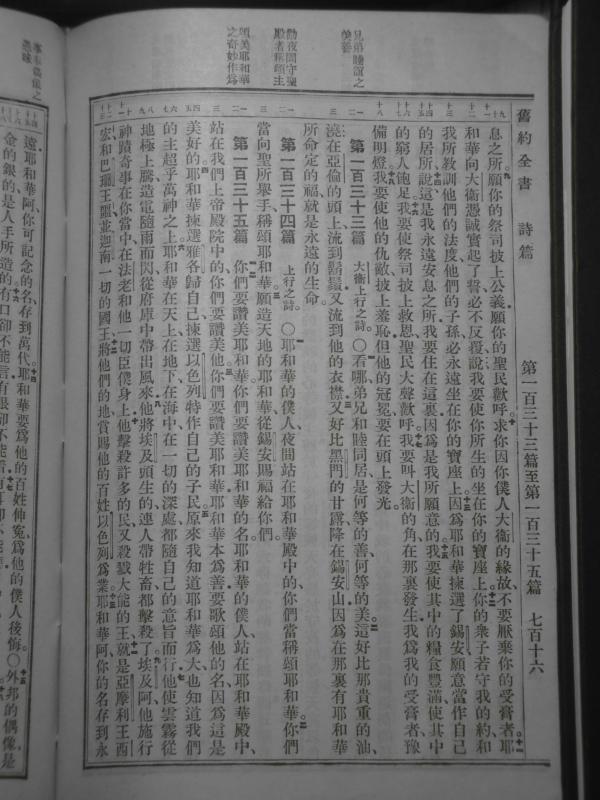 舊約全書 詩篇 第一百三十三篇至第一百三十五篇 七百十六
兄弟睦誼之
美善
勸夜間守聖
殿者稱頌主
頌美耶和華
之奇妙作爲
事奉偶像之
愚昧
息之所願你的祭司披上公義願你的聖民歡呼求你因你僕人大衛的緣故不要厭棄你的受膏者耶
和華向大衛憑誠實起了誓必不反覆說我要使你所生的坐在你的寶座上你的衆子若守我的約和
我所教訓他們的法度他們的子孫必永遠坐在你的寶座上因爲耶和華揀選了錫安願意當作自己
的居所說這是我永遠安息之所我要住在這裏因爲是我所願意的我要使其中的糧食豐滿使其中
的窮人飽足我要使祭司披上救恩聖民大聲歡呼我要叫大衛的角在那裏發生我爲我的受膏者豫
備明燈我要使他的仇敵披上羞恥但他的冠冕要在頭上發光
第一百三十三篇 大衛上行之詩。〇看哪弟兄和睦同居是何等的善何等的美這好比那貴重的油
澆在亞倫的頭上流到鬍鬚又流到他的衣襟又好比黑門的甘露降在錫安山因爲在那裏有耶和華
所命定的福就是永遠的生命
第一百三十四篇 上行之詩。〇耶和華的僕人夜間站在耶和華殿中的你們當稱頌耶和華你們
當向聖所舉手稱頌耶和華願造天地的耶和華從錫安賜福給你們
第一百三十五篇 你們要讚美耶和華你們要讚美耶和華的名耶和華的僕人站在耶和華殿中
站在我們上帝殿院中的你們要讚美他你們要讚美耶和華耶和華本爲善要歌頌他的名因爲這是
美好的耶和華揀選雅各歸自己揀選以色列特作自己的子民原來我知道耶和華爲大也知道我們
的主超乎萬神之上耶和華在天上在地下在海中在一切的深處都隨自己的意旨而行他使雲霧從
地極上騰造電隨雨而閃從府庫中帶出風來他將埃及頭生的連人帶牲畜都擊殺了埃及阿他施行
神蹟奇事在你當中在法老和他一切臣僕身上他擊殺許多的民又殺戮大能的王就是亞摩利王西
宏和巴珊王噩並迦南一切的國王將他們的地賞賜他的百姓以色列爲業耶和華阿你的名存到永
遠耶和華阿你可記念的名存到萬代耶和華要爲他的百姓伸冤爲他的僕人後悔〇外邦的偶像是
金的銀的是人手所造的有口卻不能言有眼卻不能看